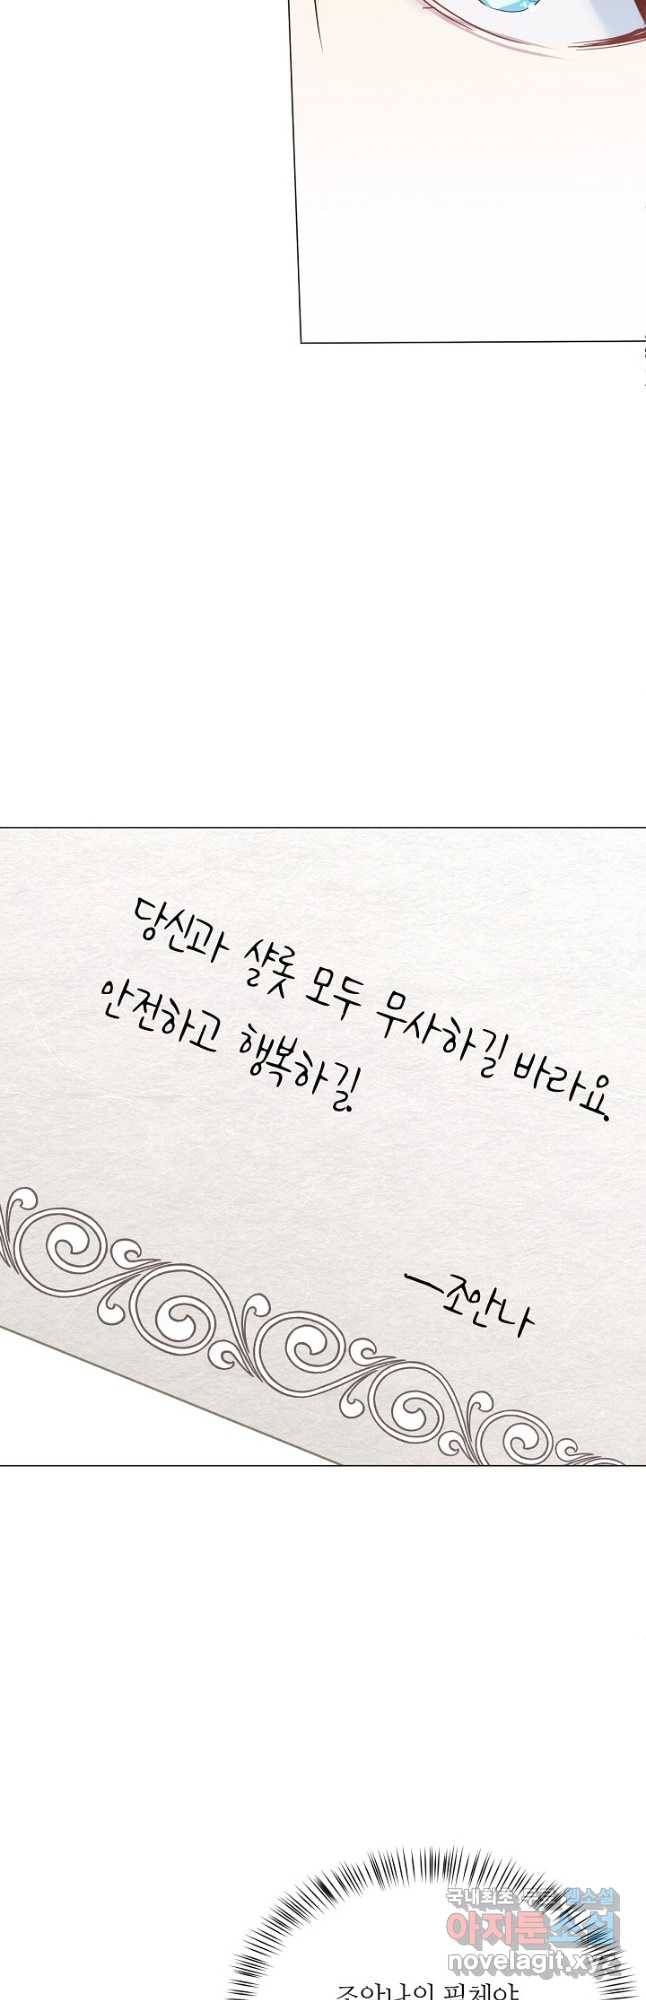 당신과 샬롯 모두 무사하길 바라요.
안전하고 행복하길.
—조안나
국내최초 무료 웹소설
아지툰소설
novelagit.xyz
조안나의 필체야